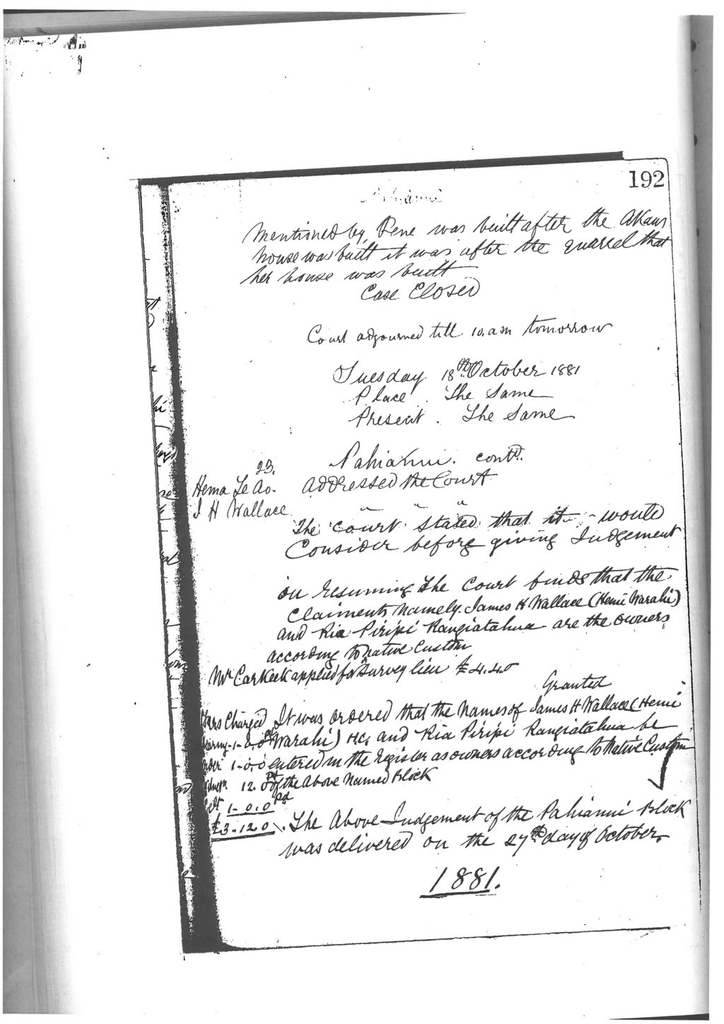 192
mentioned by Pene was built after the Akau
house was built it was after the quarrel that
her house was built
Case Closed
Court adjourned till 10.am tomorrow
Tuesday 18th October 1881
Place . The Same
Present . The Same
23. Pahianui. contd.
Hema Te Ao. addressed the Court
J H Wallace " " "
The Court stated that it would
Consider before giving Judgement
on resuming The Court finds that the
Claiments Namely. James H Wallace (Hemi Warahi)
and Ria Piripi Rangiatahua are the owners
according to native Custom
Mr Carkeek applied for a survey lien £4.4.0
Granted
Charged It was ordered that the Names of James H Wallace (Hemi
1-0-0 Warahi) HC, and Ria Piripi Rangiatahua be
1-0-0 entered in the Register as owners according to Native Custom
12.0 of the above Named Block
1-0.0 pd
£3-12 0 . The Above Judgement of the Pahianui Block
was delivered on the 27th day of October
1881.